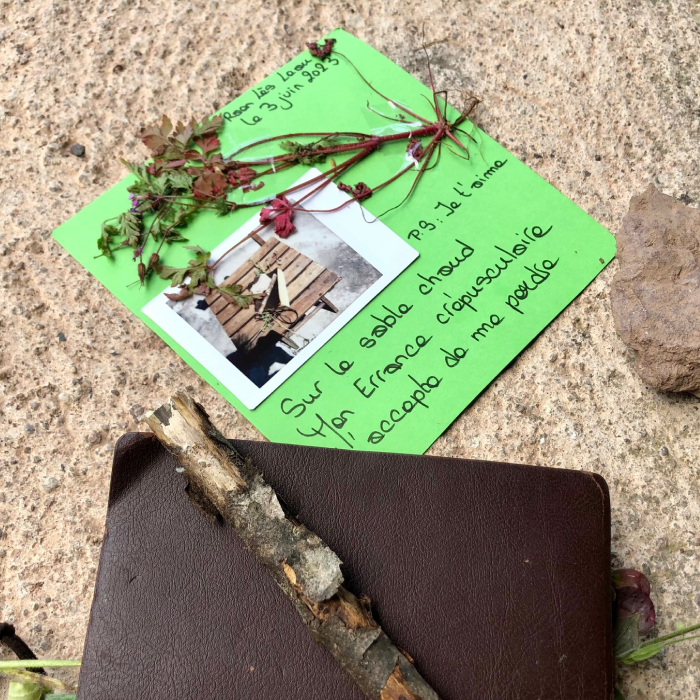 le 3 juin 2023
P.S: Je t'aime
Sur le sable chaud
Errance crépusculaire
J'accepte de me perdre